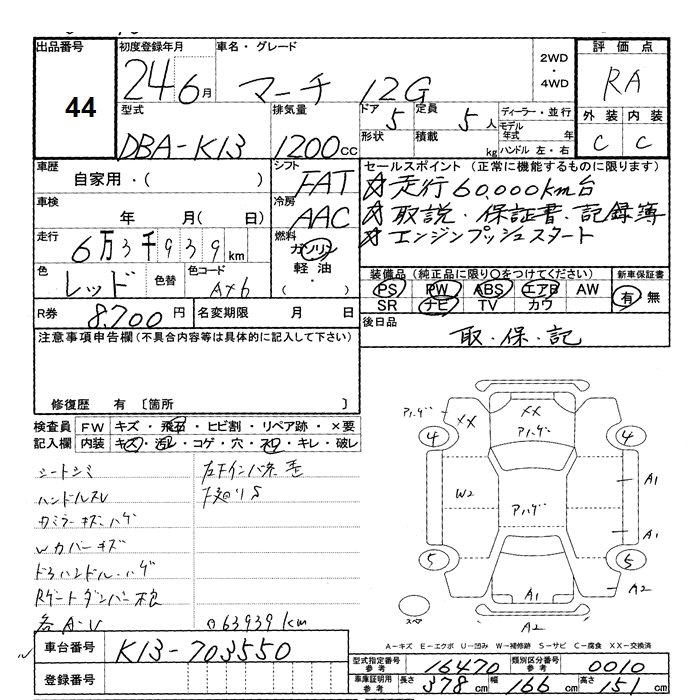 出品番号 44
初度登録年月 24 6月
車名・グレード マーチ 12G
2WD・4WD
評価点 RA
外装 内装
C C
型式 DBA-K13
排気量 1200cc
ドア 5 形状
定員 5人 積載 kg
ディーラー・並行
モデル年式 年
ハンドル 左・右
車歴 自家用・( )
シフト FAT
車検 年 月(日)
冷房 AAC
走行 6万3千939km
燃料 ガソリン 軽油 ( ・ )
色 レッド 色替 色コード AX6
R券 8,700円 名変期限 月 日
セールスポイント (正常に機能するものに限ります)
☆走行60,000km台
☆取説・保証書・記録簿
☆エンジンプッシュスタート
装備品 (純正品に限り○をつけてください) 新車保証書
PS PW ABS エアB AW 有 無
SR ナビ TV カワ
後日品 取・保・記
注意事項申告欄 (不具合内容等は具体的に記入して下さい)
修復歴 有 〔箇所 〕
検査員 FW キズ・飛石・ヒビ割・リペア跡・×要
記入欄 内装 キズ・汚レ・コゲ・穴・凹・キレ・破レ
シートシミ
ハンドルスレ
下廻りS
Wカバーキズ
ドアハンドル・ハゲ
各A・U
◎63939km
アハゲ XX XX アハゲ
4 4
W2 アハゲ A1
A1
5 5
A1 A2
スペア A2
A-キズ E-エクボ U-凹み W-補修跡 S-サビ C-腐食 XX-交換済
車台番号 K13-703550
登録番号
型式指定番号 参考 16470 類別区分番号 参考 0010
車庫証明用 参考 長さ 378cm 幅 166cm 高さ 151cm